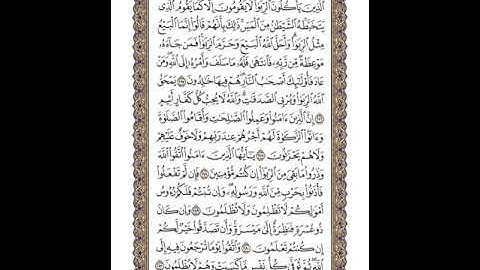 ٱلَّذِينَ يَأۡكُلُونَ ٱلرِّبَوٰاْ لَا يَقُومُونَ إِلَّا كَمَا يَقُومُ ٱلَّذِي
يَتَخَبَّطُهُ ٱلشَّيۡطَٰنُ مِنَ ٱلۡمَسِّۚ ذَٰلِكَ بِأَنَّهُمۡ قَالُوٓاْ إِنَّمَا ٱلۡبَيۡعُ
مِثۡلُ ٱلرِّبَوٰاْۗ وَأَحَلَّ ٱللَّهُ ٱلۡبَيۡعَ وَحَرَّمَ ٱلرِّبَوٰاْۚ فَمَن جَآءَهُۥ
مَوۡعِظَةٞ مِّن رَّبِّهِۦ فَٱنتَهَىٰ فَلَهُۥ مَا سَلَفَ وَأَمۡرُهُۥٓ إِلَى ٱللَّهِۖ وَمَنۡ
عَادَ فَأُوْلَٰٓئِكَ أَصۡحَٰبُ ٱلنَّارِۖ هُمۡ فِيهَا خَٰلِدُونَ ٢٧٥ يَمۡحَقُ
ٱللَّهُ ٱلرِّبَوٰاْ وَيُرۡبِي ٱلصَّدَقَٰتِۗ وَٱللَّهُ لَا يُحِبُّ كُلَّ كَفَّارٍ أَثِيمٍ
٢٧٦ إِنَّ ٱلَّذِينَ ءَامَنُواْ وَعَمِلُواْ ٱلصَّٰلِحَٰتِ وَأَقَامُواْ ٱلصَّلَوٰةَ
وَءَاتَوُاْ ٱلزَّكَوٰةَ لَهُمۡ أَجۡرُهُمۡ عِندَ رَبِّهِمۡ وَلَا خَوۡفٌ عَلَيۡهِمۡ
وَلَا هُمۡ يَحۡزَنُونَ ٢٧٧ يَٰٓأَيُّهَا ٱلَّذِينَ ءَامَنُواْ ٱتَّقُواْ ٱللَّهَ
وَذَرُواْ مَا بَقِيَ مِنَ ٱلرِّبَوٰٓاْ إِن كُنتُم مُّؤۡمِنِينَ ٢٧٨ فَإِن لَّمۡ تَفۡعَلُواْ
فَأۡذَنُواْ بِحَرۡبٖ مِّنَ ٱللَّهِ وَرَسُولِهِۦۖ وَإِن تُبۡتُمۡ فَلَكُمۡ رُءُوسُ
أَمۡوَٰلِكُمۡ لَا تَظۡلِمُونَ وَلَا تُظۡلَمُونَ ٢٧٩ وَإِن كَانَ
ذُو عُسۡرَةٖ فَنَظِرَةٌ إِلَىٰ مَيۡسَرَةٖۚ وَأَن تَصَدَّقُواْ خَيۡرٞ لَّكُمۡ
إِن كُنتُمۡ تَعۡلَمُونَ ٢٨٠ وَٱتَّقُواْ يَوۡمٗا تُرۡجَعُونَ فِيهِ إِلَى
ٱللَّهِۖ ثُمَّ تُوَفَّىٰ كُلُّ نَفۡسٖ مَّا كَسَبَتۡ وَهُمۡ لَا يُظۡلَمُونَ ٢٨١